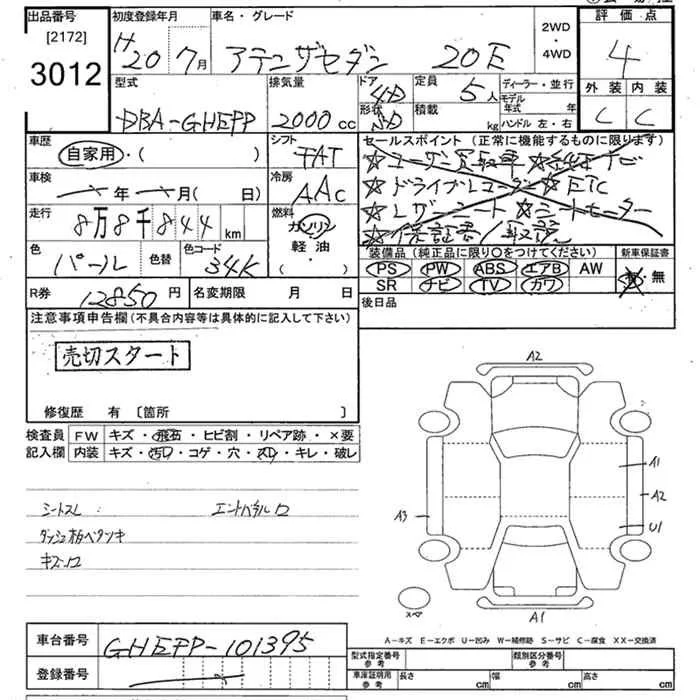 出品番号 初度登録年月 車名・グレード 2WD・4WD 評価点
[2172]
3012
H20年 7月 アテンザセダン 20E 4
型式 排気量 ドア 形状 定員 積載 ディーラー・並行 外装 内装
DBA-GHEFP 2000cc 4D SD 5人 kg モデル年式 年 ハンドル 左・右 C C
車歴 自家用・( ) シフト FAT
セールスポイント (正常に機能するものに限ります)
☆ドライブレコーダー ☆ETC
☆レザーシート ☆シートヒーター
☆保証書/取説
車検 年 月( 日) 冷房 AAC
走行 8万8千844km 燃料 ガソリン・軽油・( )
色 パール 色替 色コード 34K
装備品 (純正品に限り○をつけてください) 新車保証書
PS PW ABS エアB AW 有・無
SR ナビ TV カワ
R券 12850円 名変期限 月 日 後日品
注意事項申告欄 (不具合内容等は具体的に記入して下さい)
売切スタート
修復歴 有 [箇所 ]
検査員 記入欄
FW キズ・飛石・ヒビ割・リペア跡・×要
内装 キズ・汚レ・コゲ・穴・スレ・キレ・破レ
シートスレ
ダッシュ板ベタツキ
キズ・ロ
A2
A1
A2
A3
U1
スペア
A1
A-キズ E-エクボ U-凹み W-補修跡 S-サビ C-腐食 XX-交換済
車台番号 GHEFP-101395
登録番号
型式指定番号 参考 類別区分番号 参考
車庫証明用 参考 長さ cm 幅 cm 高さ cm